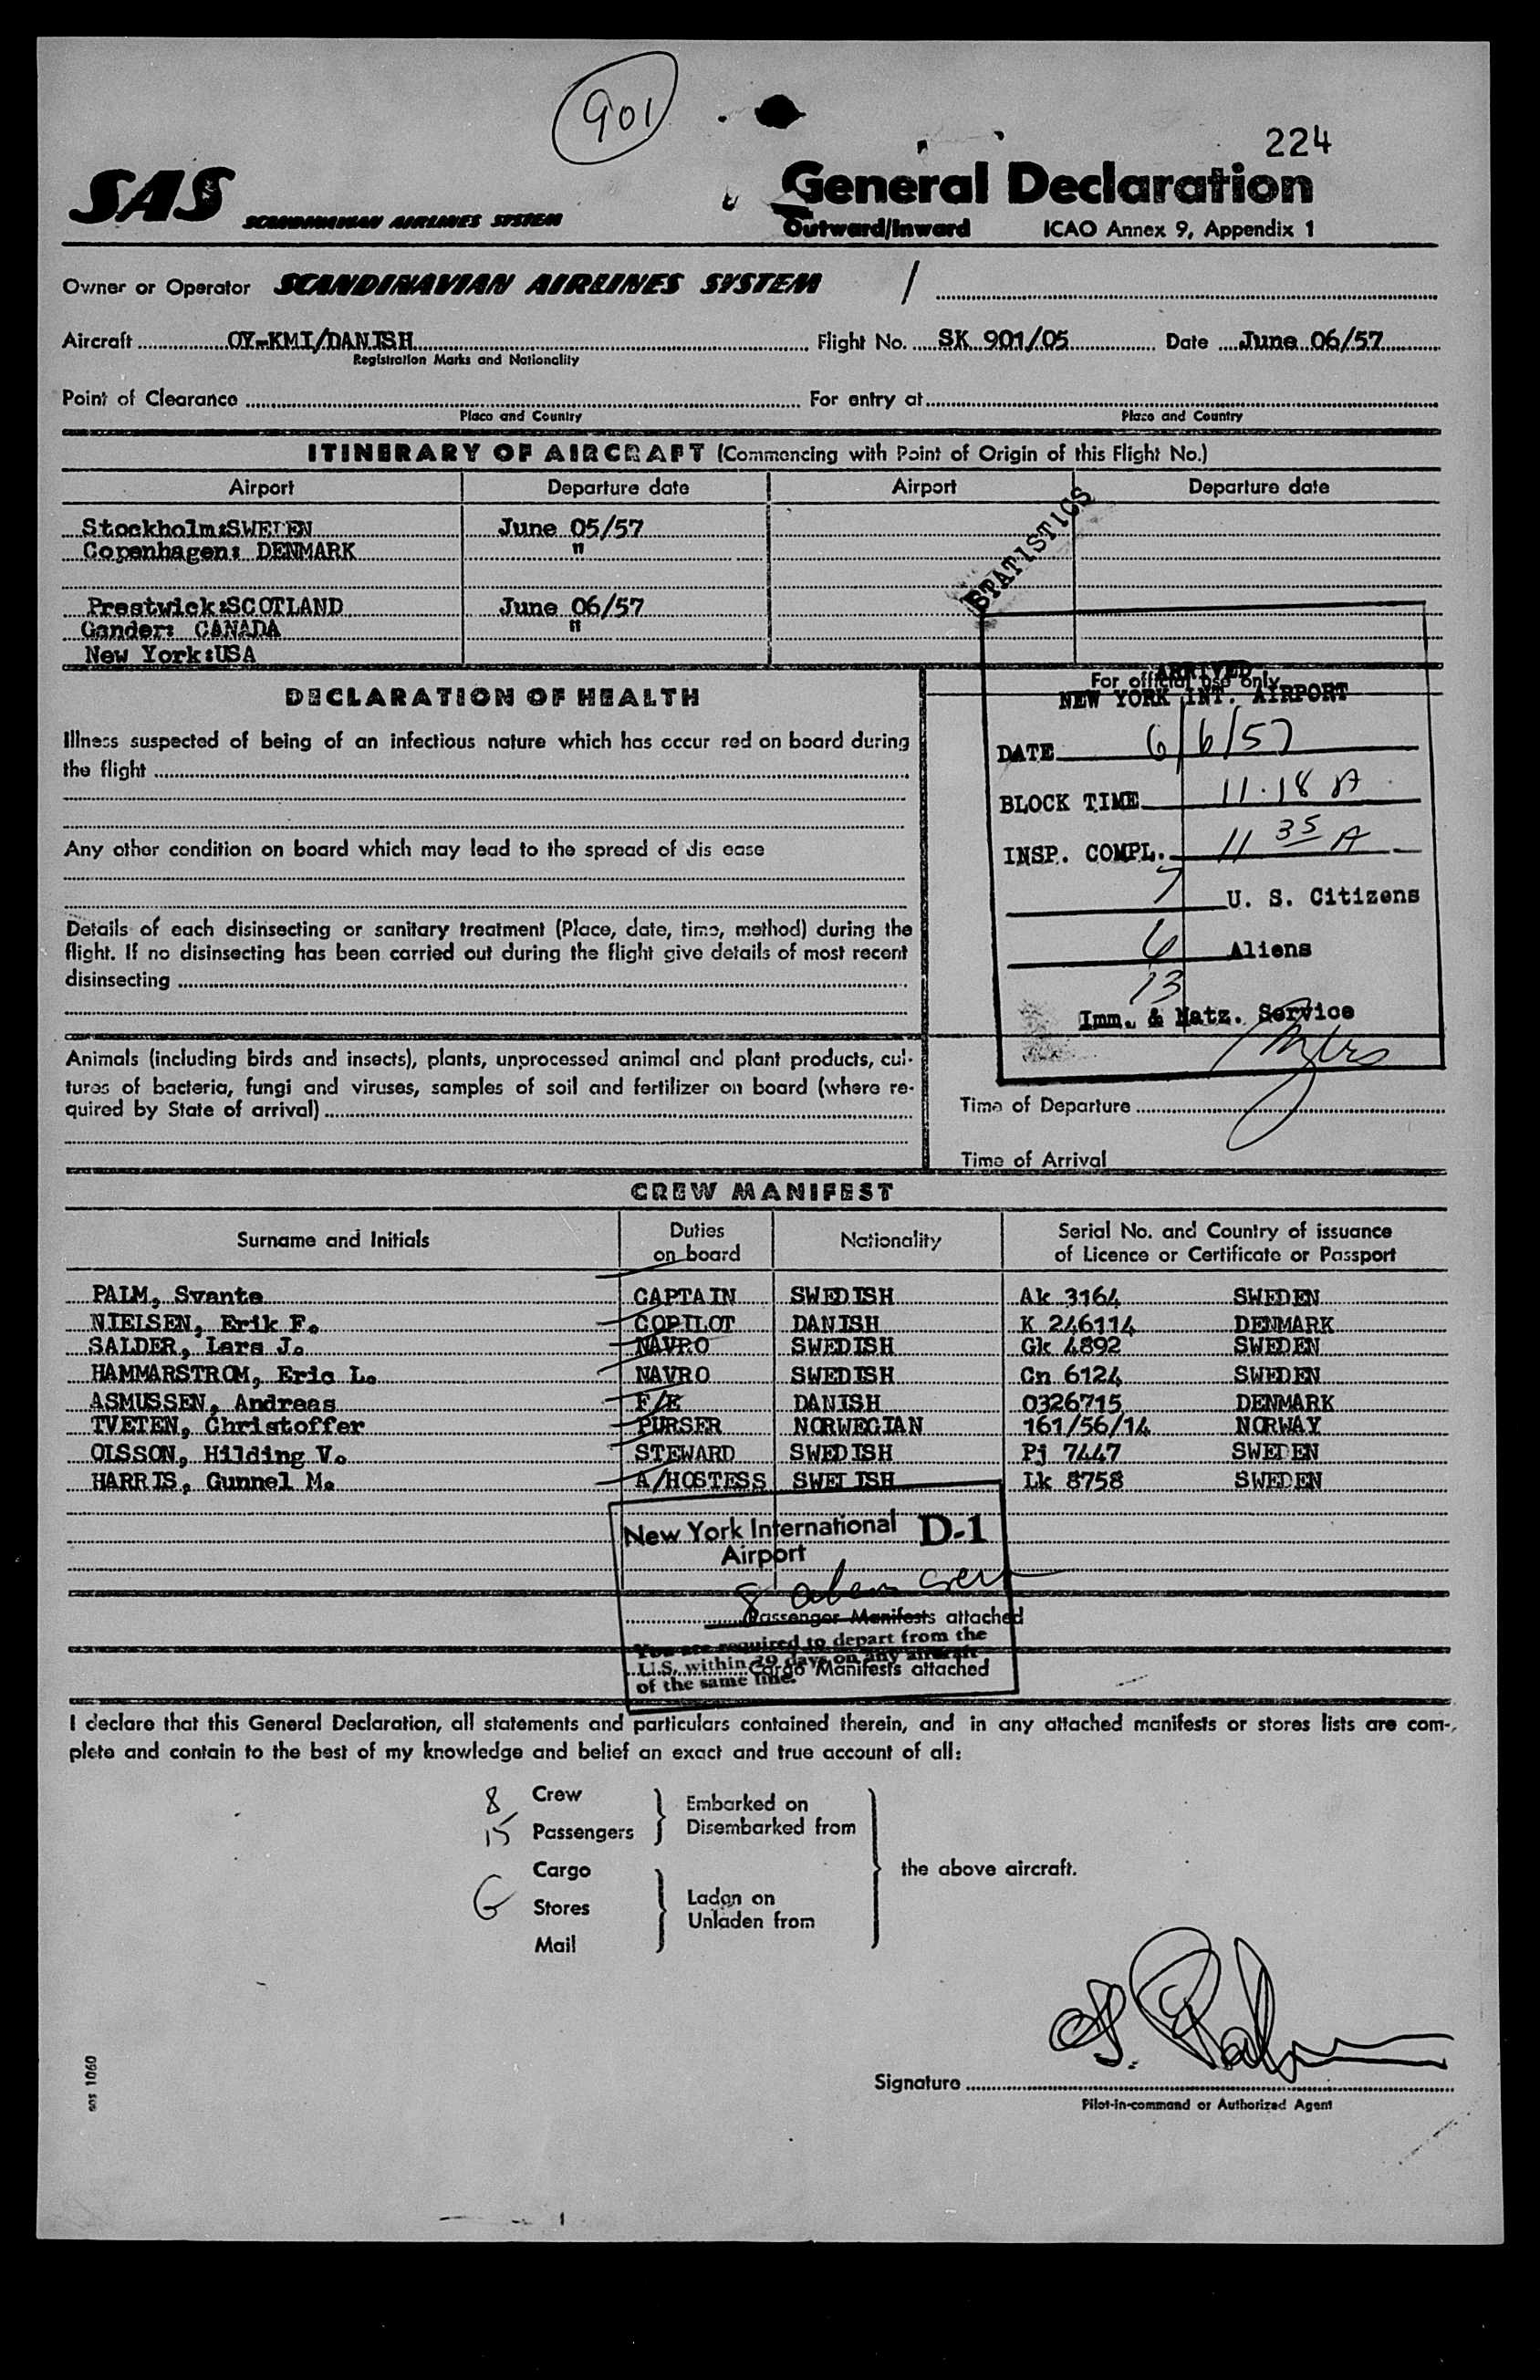 901
224
SAS SCANDINAVIAN AIRLINES SYSTEM
General Declaration
Outward/Inward ICAO Annex 9, Appendix 1
Owner or Operator SCANDINAVIAN AIRLINES SYSTEM /
Aircraft OY-KMI/DANISH Flight No. SK 901/05 Date June 06/57
Registration Marks and Nationality
Point of Clearance For entry at
Place and Country Place and Country
ITINERARY OF AIRCRAFT (Commencing with Point of Origin of this Flight No.)
Airport Departure date Airport Departure date
STATISTICS
Stockholm:SWEDEN June 05/57
Copenhagen: DENMARK "
Prestwick:SCOTLAND June 06/57
Gander: CANADA "
New York:USA
DECLARATION OF HEALTH
Illness suspected of being of an infectious nature which has occur red on board during
the flight
Any other condition on board which may lead to the spread of dis ease
Details of each disinsecting or sanitary treatment (Place, date, time, method) during the
flight. If no disinsecting has been carried out during the flight give details of most recent
disinsecting
Animals (including birds and insects), plants, unprocessed animal and plant products, cul-
tures of bacteria, fungi and viruses, samples of soil and fertilizer on board (where re-
quired by State of arrival)
For official use only
ARRIVED
NEW YORK INT. AIRPORT
DATE 6/6/57
BLOCK TIME 11.18 A
INSP. COMPL. 11 35 A
7 U. S. Citizens
6 Aliens
13
Imm. & Natz. Service
Time of Departure
Time of Arrival
CREW MANIFEST
Surname and Initials Duties on board Nationality Serial No. and Country of issuance of Licence or Certificate or Passport
PALM, Svante CAPTAIN SWEDISH Ak 3164 SWEDEN
NIELSEN, Erik F. COPILOT DANISH K 246114 DENMARK
SALDER, Lars J. NAVRO SWEDISH Gk 4892 SWEDEN
HAMMARSTROM, Eric L. NAVRO SWEDISH Cn 6124 SWEDEN
ASMUSSEN, Andreas F/E DANISH 0326715 DENMARK
TVETEN, Christoffer PURSER NORWEGIAN 161/56/14 NORWAY
OLSSON, Hilding V. STEWARD SWEDISH Pj 7447 SWEDEN
HARRIS, Gunnel M. A/HOSTESS SWEDISH Lk 8758 SWEDEN
New York International D-1
Airport
8 alien crew
Passenger Manifests attached
You are required to depart from the
U.S. within 29 days on any aircraft
of the same line.
Cargo Manifests attached
I declare that this General Declaration, all statements and particulars contained therein, and in any attached manifests or stores lists are com-
plete and contain to the best of my knowledge and belief an exact and true account of all:
8 Crew
15 Passengers
Embarked on
Disembarked from
Cargo
Stores
Mail
Laden on
Unladen from
the above aircraft.
S. Palm
Signature
Pilot-in-command or Authorized Agent
sas 1060